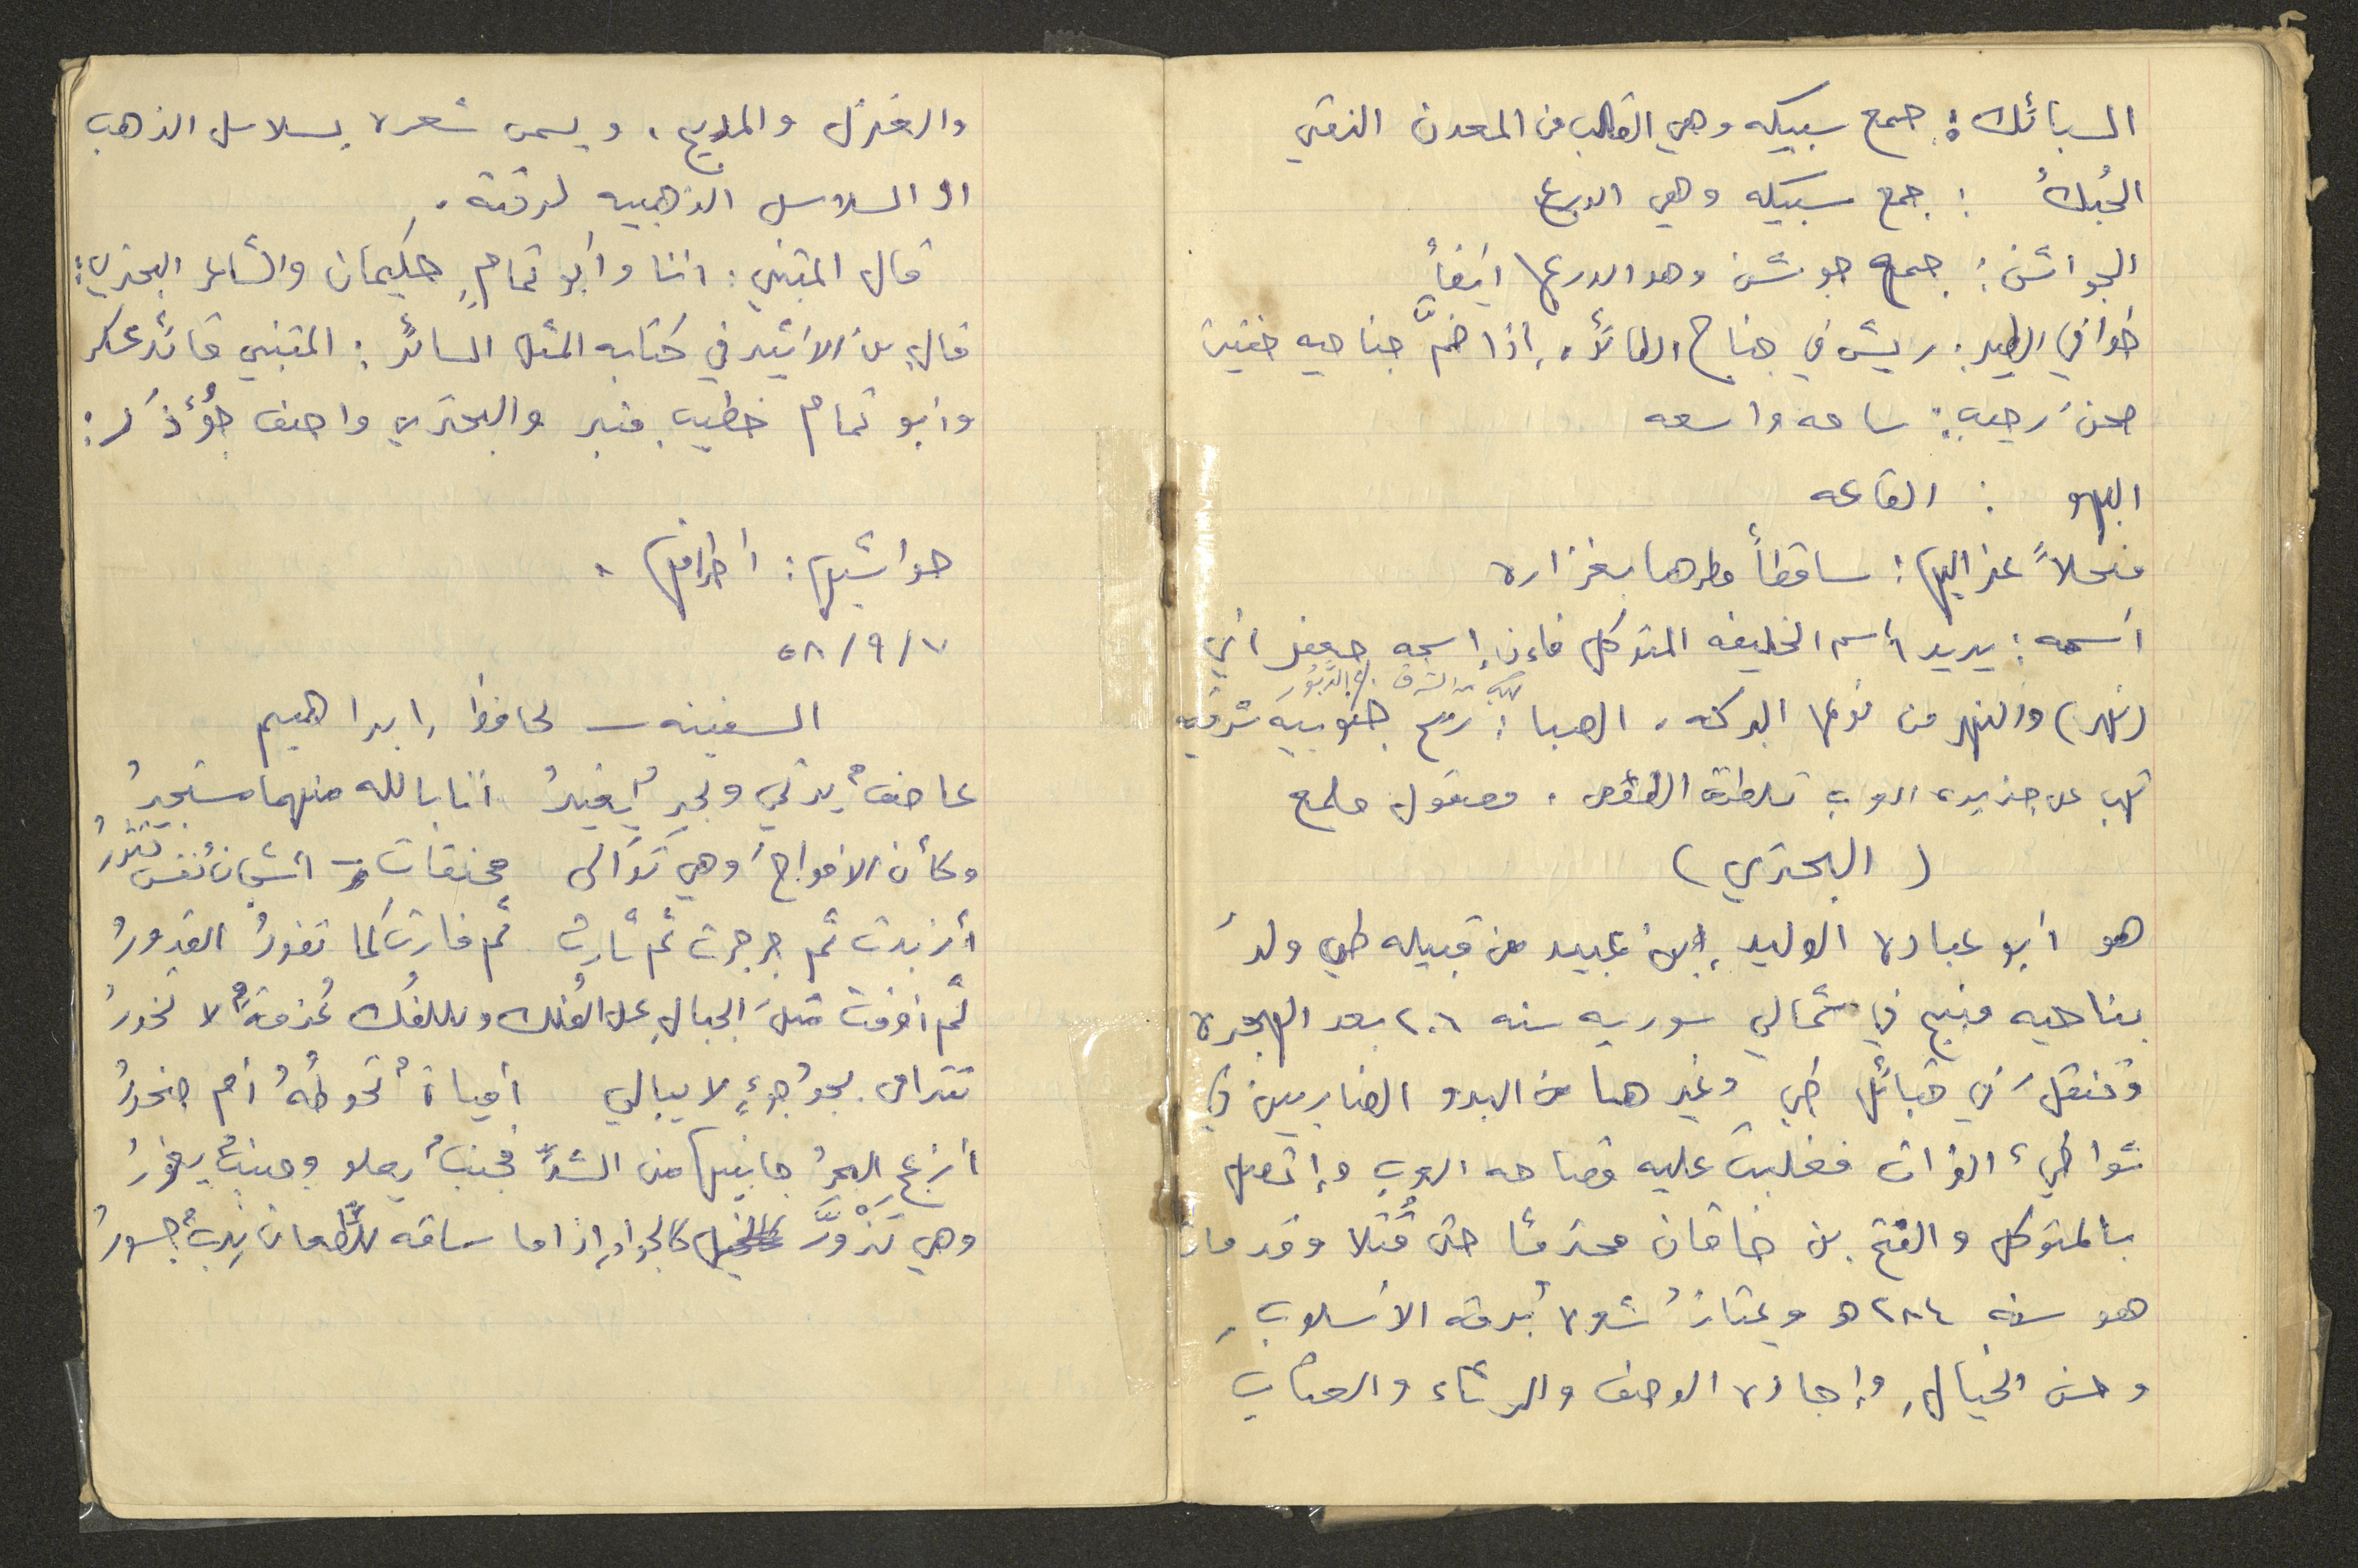 السبائك: جمع سبيكه وهي القالب من المعدن النقي
الحُبكُ : جمع سبيكه وهي الدرع
الجواشن: جمع جوشن وهو الدرع ايضاً
خوافي الطير: ريش في جناح الطائر، إذا ضمَّ جناحيه خفيت
صحن رحيب: ساحه واسعه
البهو : القاعه
منحلاً عزاليها: ساقطاً مطرها بغزاره
اسمه: يريد اسم الخليفه المتوكل فاءن إسمه جعفر اي
(نهر) والنهر من نوعها البركه. الصبا: ريح جنوبيه شرقيه
تهب على جزيره العرب تلطف الطقس. مصقول ملمع
(البحتري)
هو أبو عباده الوليد إبن عبيد من قبيله طي ولد
بناحيه منبج في شمالي سوريه سنه ٢٠٦ بعد الهجره
وتنقل في قبائل طي وغيرها من البدو الضاربين في
شواطيء الفرات فغلبت عليه فصاحه العرب وإتصل
بالمتوكل والفتح بن خاقان محترمًا حتى قُتلا وقد مات
هو سنه ٢٨٤ هـ ويمتازُ شعره برقه الأسلوب
وحسن الخيال، وإجاده الوصف والرثاء والعتاب
والغزل والمديح، ويسمى شعره بسلاسل الذهب
او السلاسل الذهبيه لرقته.
قال المتنبي: أنا وأبو تمامٍ حكيمان والشاعر البحتري:
قال بن الأثير في كتابه المثل السائر: المتنبي قائد عسكر
وابو تمام خطيب منبر والبحتري واصف جؤذر:
حواشيها: اطرافها.
٥٨/٩/٧
السفينه – لحافظ ابراهيم
عاصفٌ يرتمي وبحرٌ يغيرُ أنا بالله منهما مستجيرُ
وكأن الامواج وهي توالى محنقات أشجان نفس تثورُ
أزبدت ثم جرجرت ثم ثارت ثم فارت كما تفورُ القدورُ
ثم أوفت مثل الجبالِ على الفلك وللفلك عُزمةٌ لا تخورُ
تترامى بجؤجؤٍ لا يبالي أمياهٌ تحوطُهُ أم صخورُ
أزعج البحرُ جانبيها من الشدِّ فجنبٌ يعلو وجنبٌ يغورُ
وهي تزْوَرُّ كالجوادِ إذا ما ساقه للطعان ندبٌ جسورُ